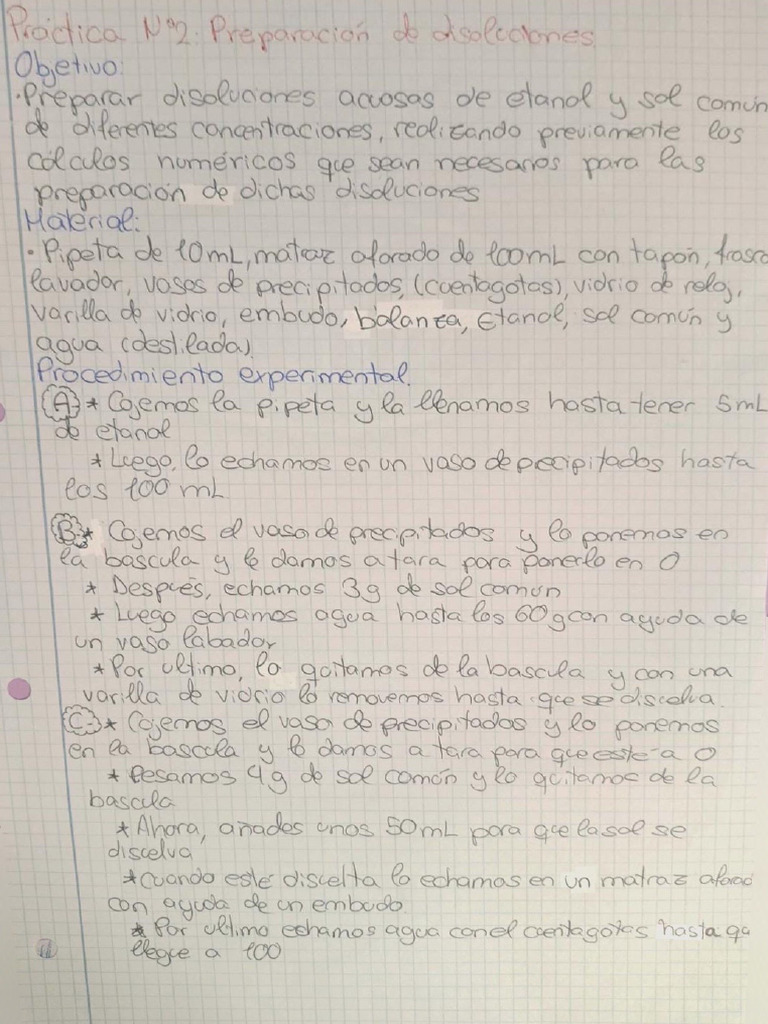 Práctica Nº2: Preparación de disoluciones
Objetivo:
·Preparar disoluciones acuosas de etanol y sal común
de diferentes concentraciones, realizando previamente los
cálculos numéricos que sean necesarios para las
preparación de dichas disoluciones
Material:
· Pipeta de 10mL, matraz aforado de 100mL con tapón, frasco
lavador, vasos de precipitados, (cuentagotas), vidrio de reloj,
varilla de vidrio, embudo, balanza, Etanol, sal común y
agua (destilada)
Procedimiento experimental.
A * Cojemos la pipeta y la llenamos hasta tener 5mL
de etanol
* Luego, lo echamos en un vaso de precipitados hasta
los 100 mL
B * Cojemos el vaso de precipitados y lo ponemos en
la bascula y le damos a tara para ponerlo en 0
* Después, echamos 3g de sal común
* Luego echamos agua hasta los 60g con ayuda de
un vaso labador
* Por ultimo, lo quitamos de la bascula y con una
varilla de vidrio lo removemos hasta que se discelva.
C * Cojemos el vaso de precipitados y lo ponemos
en la bascula y le damos a tara para que este a 0
* Pesamos 4g de sal común y lo quitamos de la
bascula
* Ahora, añades unos 50mL para que la sal se
discelva
* Cuando esté discelta lo echamos en un matraz aforado
con ayuda de un embudo
* Por ultimo echamos agua con el cuentagotas hasta que
llegue a 100